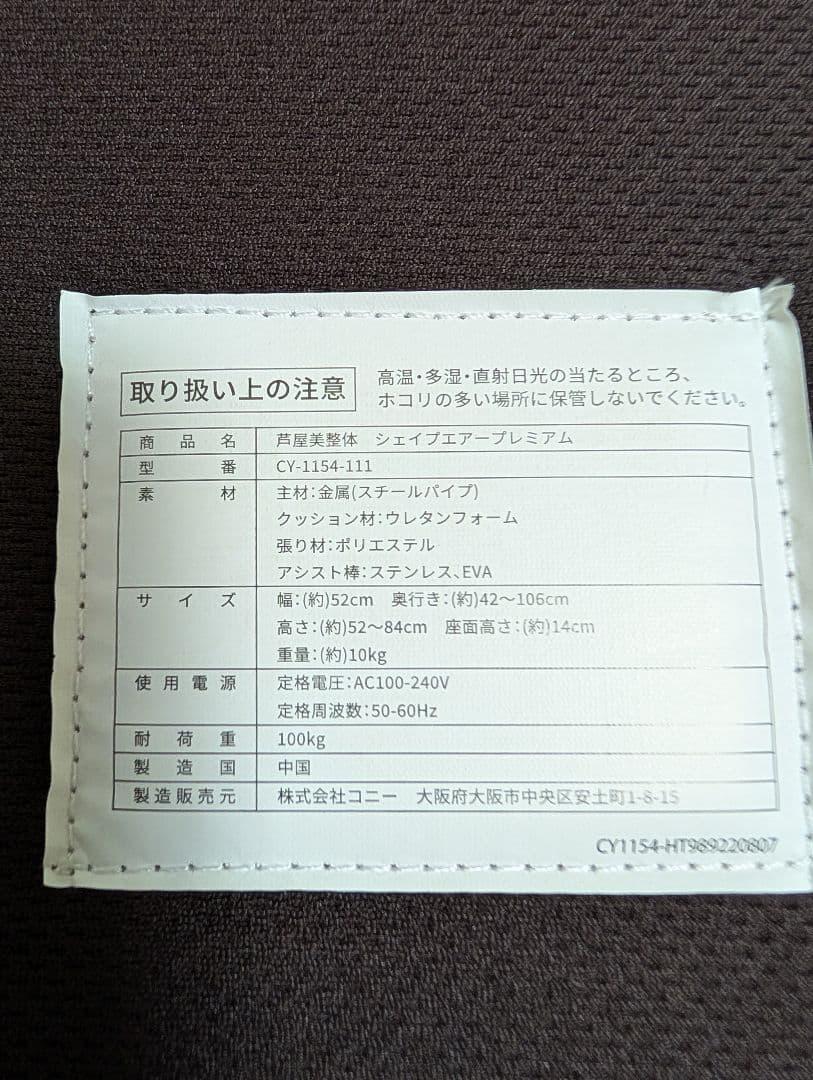 取り扱い上の注意
高温・多湿・直射日光の当たるところ、
ホコリの多い場所に保管しないでください。
商品名 芦屋美整体 シェイプエアープレミアム
型番 CY-1154-111
素材 主材:金属(スチールパイプ)
クッション材:ウレタンフォーム
張り材:ポリエステル
アシスト棒:ステンレス、EVA
サイズ 幅:(約)52cm 奥行き:(約)42〜106cm
高さ:(約)52〜84cm 座面高さ:(約)14cm
重量:(約)10kg
使用電源 定格電圧:AC100-240V
定格周波数:50-60Hz
耐荷重 100kg
製造国 中国
製造販売元 株式会社コニー 大阪府大阪市中央区安土町1-8-15
CY1154-HT989220807